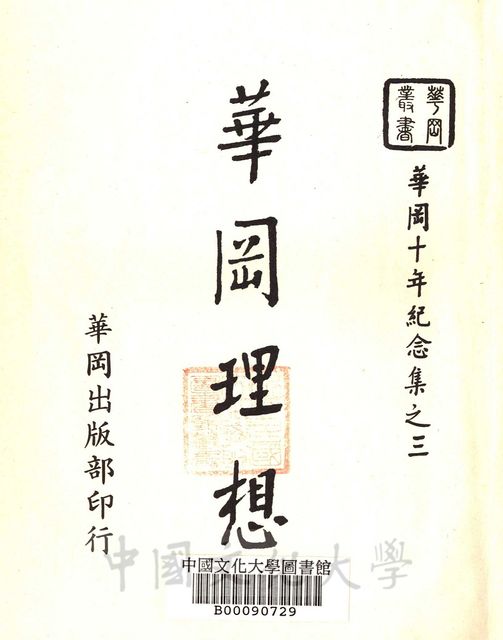 華岡
叢書
華岡十年紀念集之三
華岡理想
華岡出版部印行
中國文化大學
中國文化大學圖書館
B00090729